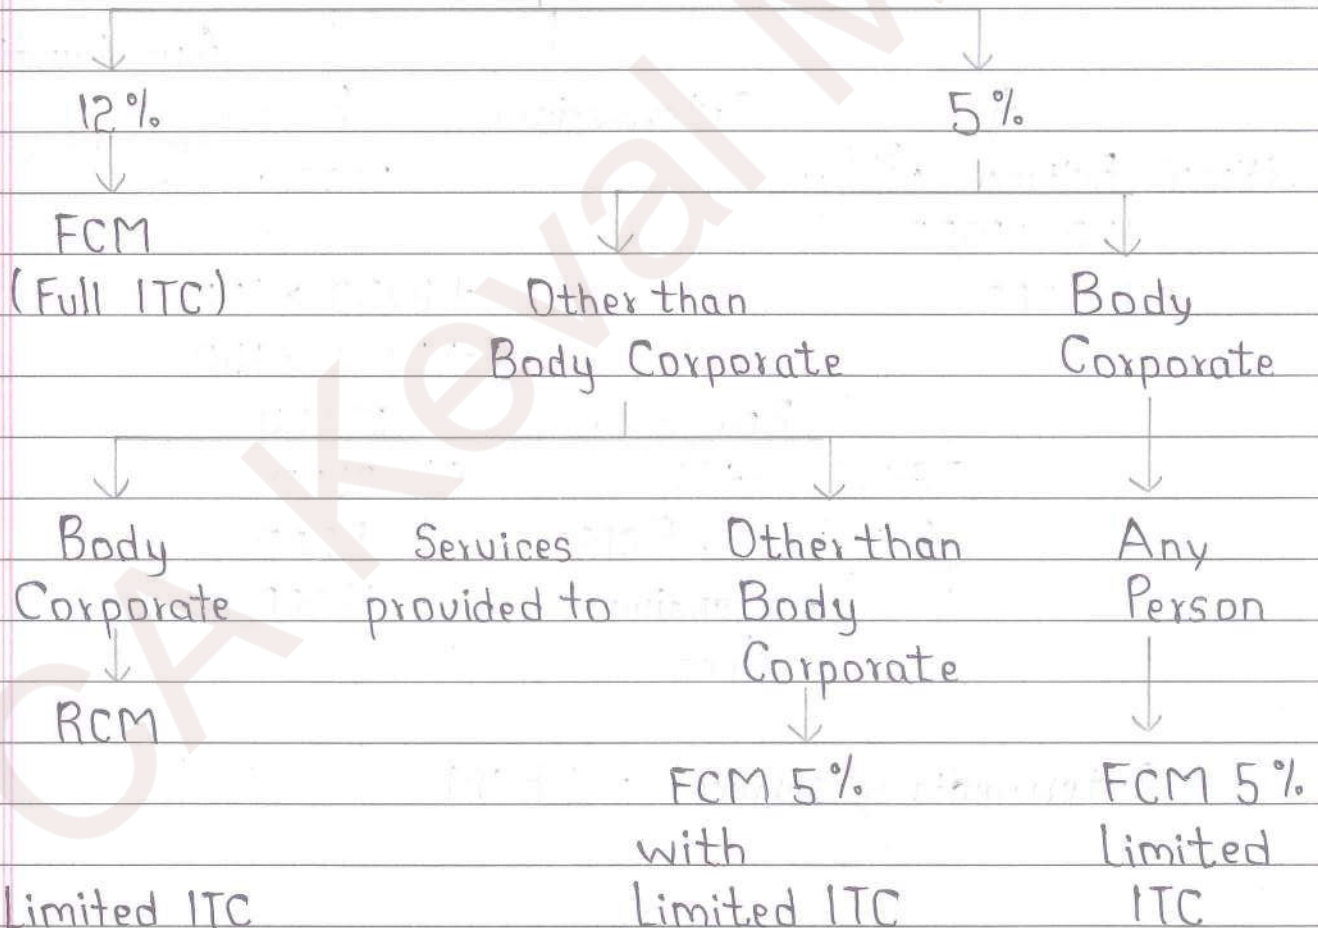 12%
5%
FCM
(Full ITC)
Other than
Body Corporate
Body
Corporate
Body
Corporate
Services
provided to
Other than
Body
Corporate
Any
Person
RCM
FCM 5%
with
Limited ITC
FCM 5%
Limited
ITC
Limited ITC
CA Keval M